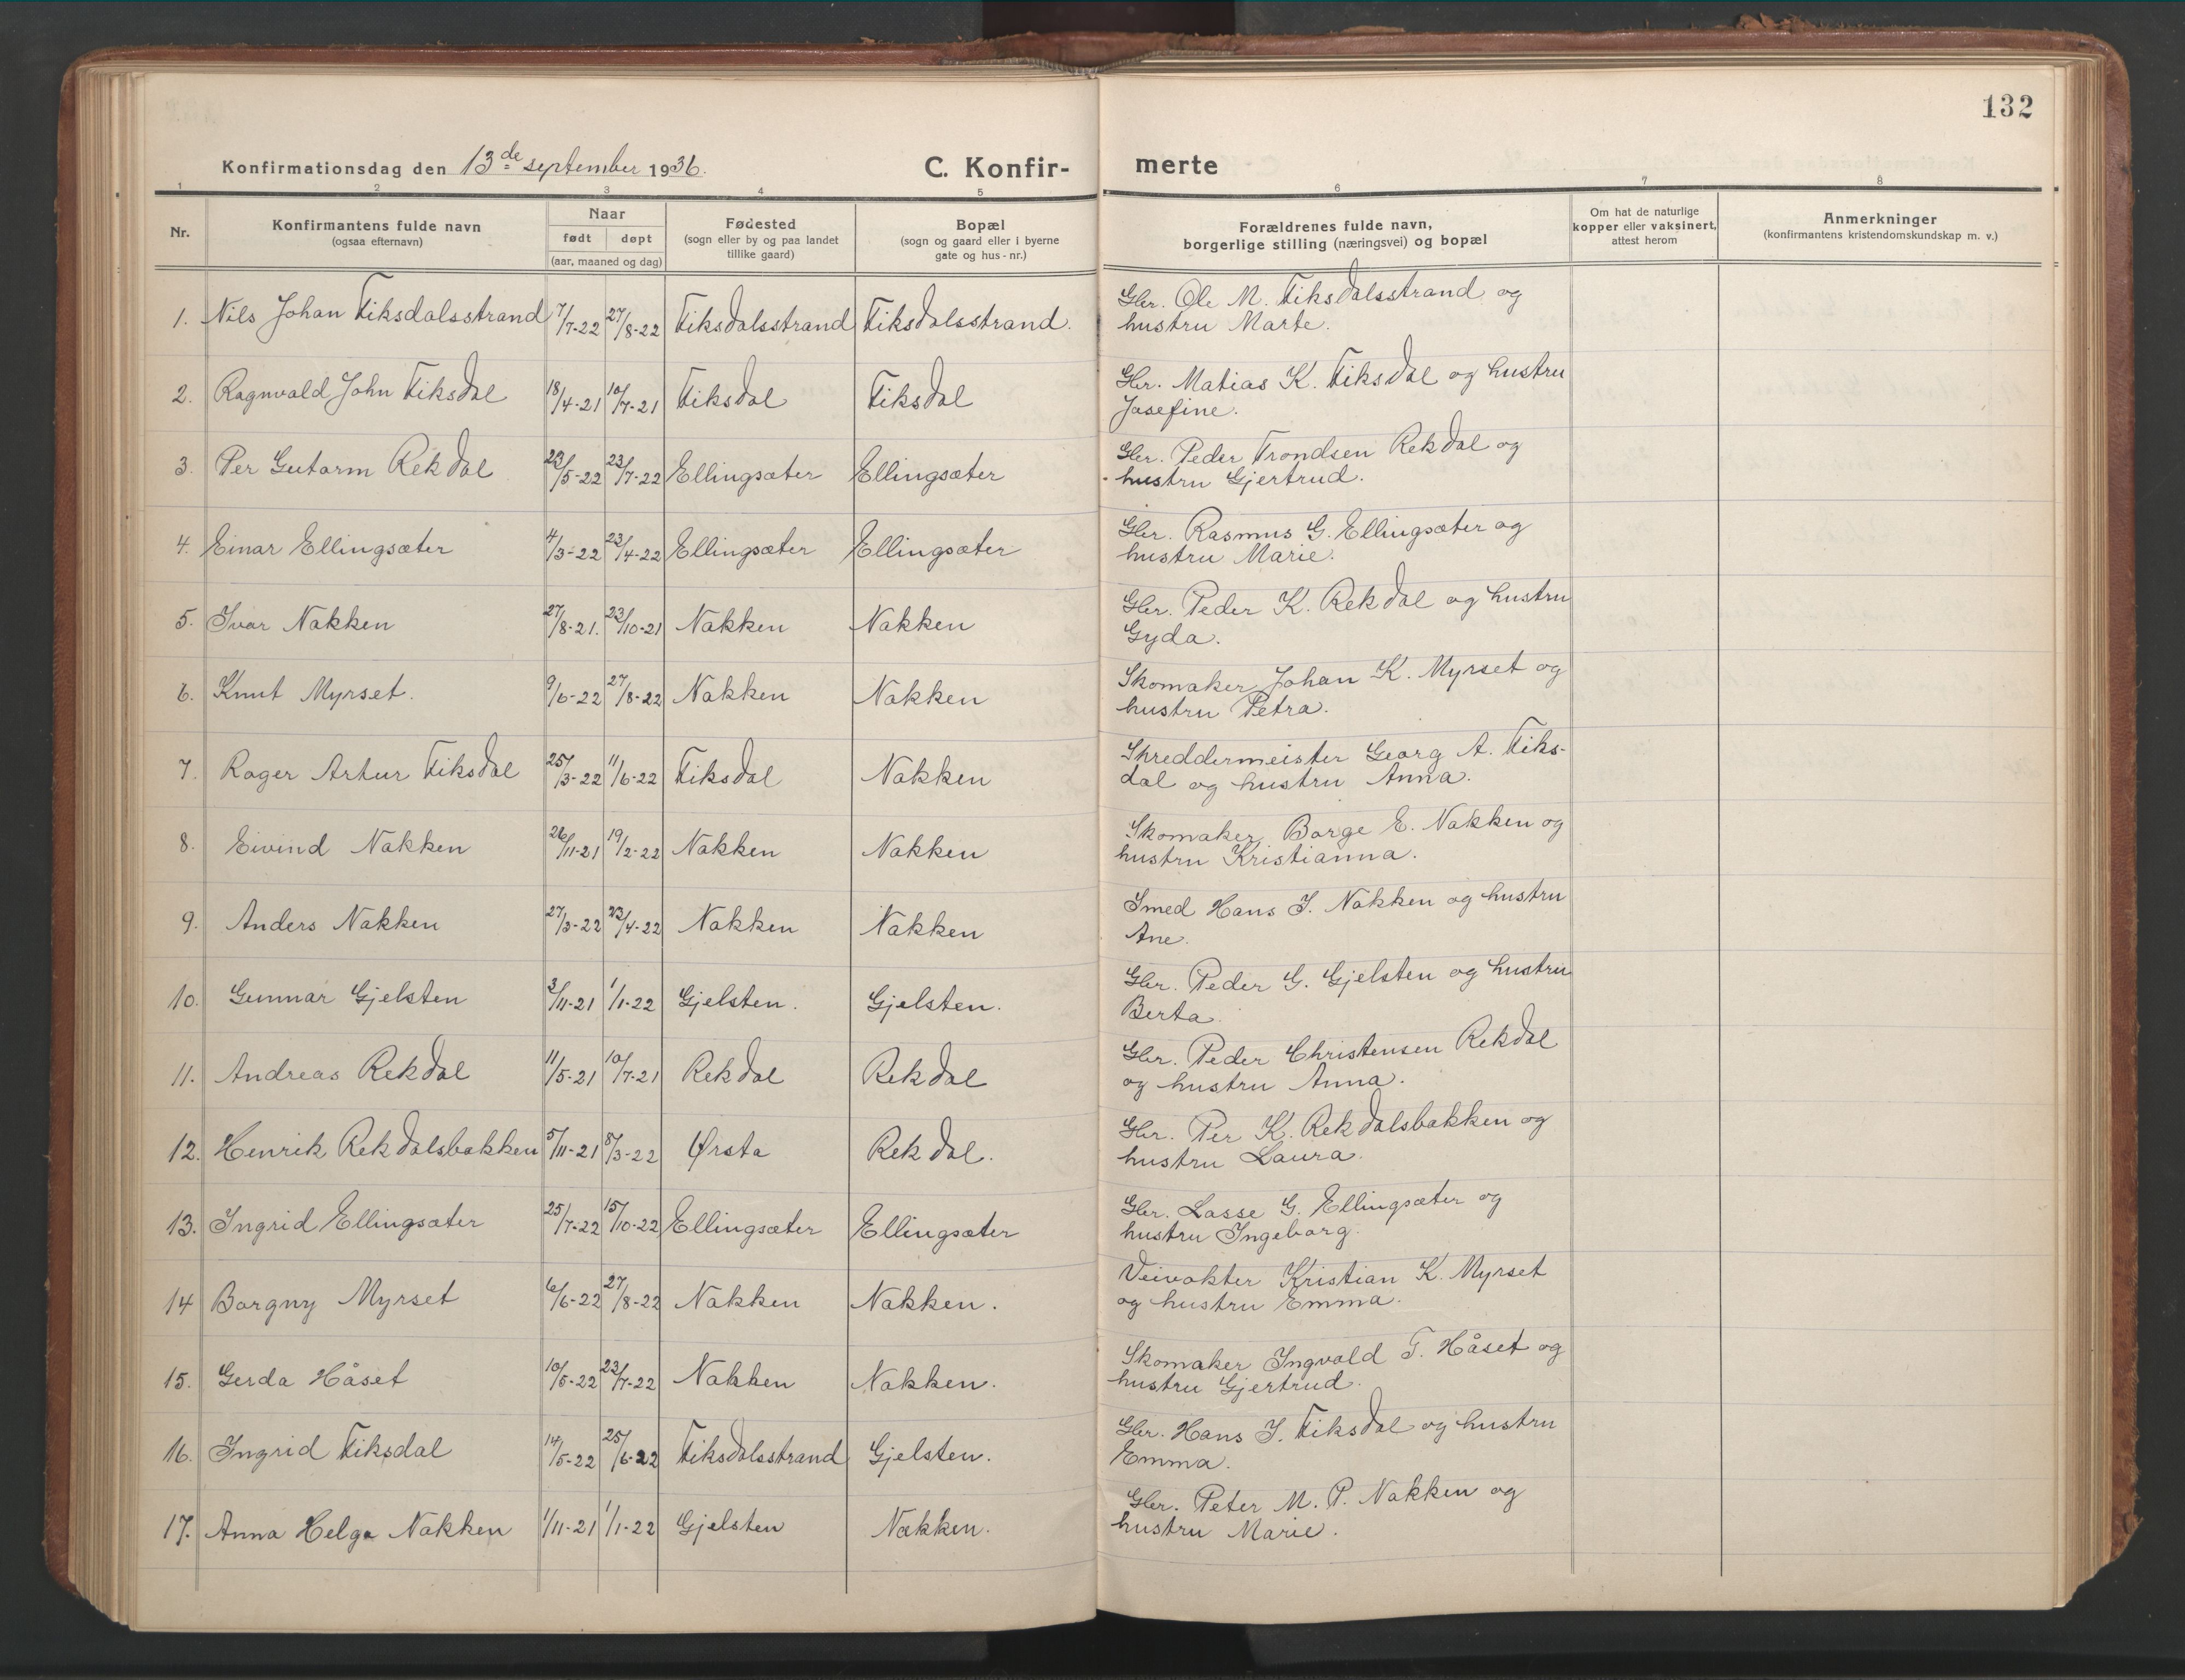 132
Konfirmationsdag den 13de september 1936.
C. Konfir-
merte
1 2 3 4 5 6 7 8
Nr. Konfirmantens fulde navn (ogsaa efternavn) Naar født døpt (aar, maaned og dag) Fødested (sogn eller by og paa landet tillike gaard) Bopæl (sogn og gaard eller i byerne gate og hus-nr.) Forældrenes fulde navn, borgerlige stilling (næringsvei) og bopæl Om hat de naturlige kopper eller vaksinert, attest herom Anmerkninger (konfirmantens kristendomskundskap m. v.)
1. Nils Johan Tiksdalsstrand 7/7-22 27/8-22 Tiksdalsstrand Tiksdalsstrand. Gbr. Ole M. Tiksdalsstrand og
hustru Marte.
2. Ragnvald John Tiksdal 18/4-21 10/7-21 Tiksdal Tiksdal Gbr. Matias K. Tiksdal og hustru
Josefine.
3. Per Gutorm Rekdal 23/5-22 23/7-22 Ellingsæter Ellingsæter Gbr. Peder Trondsen Rekdal og
hustru Gjertrud.
4. Einar Ellingsæter 4/3-22 23/4-22 Ellingsæter Ellingsæter Gbr. Rasmus G. Ellingsæter og
hustru Marie.
5. Ivar Nakken 27/8-21. 23/10-21 Nakken Nakken Gbr. Peder K. Rekdal og hustru
Gyda.
6. Knut Myrset. 9/6-22 27/8-22 Nakken Nakken Skomaker Johan K. Myrset og
hustru Petra.
7. Roger Artur Tiksdal 25/3-22 11/6-22 Tiksdal Nakken Skreddermeister Georg A. Tiks-
dal og hustru Anna.
8. Eivind Nakken 26/11-21 19/2-22 Nakken Nakken Skomaker Borge E. Nakken og
hustru Kristianna.
9. Anders Nakken 27/3-22 23/4-22 Nakken Nakken Smed Hans I. Nakken og hustru
Ane.
10. Gunnar Gjelsten 3/11-21 1/1-22 Gjelsten. Gjelsten. Gbr. Peder G. Gjelsten og hustru
Berta.
11. Andreas Rekdal 11/5-21 10/7-21 Rekdal Rekdal Gbr. Peder Christensen Rekdal
og hustru Anna.
12. Henrik Rekdalsbakken 5/11-21 5/3-22 Ørsta Rekdal. Gbr. Per K. Rekdalsbakken og
hustru Laura.
13. Ingrid Ellingsæter 25/7-22 15/10-22 Ellingsæter Ellingsæter Gbr. Lasse G. Ellingsæter og
hustru Ingeborg.
14 Borgny Myrset 6/6-22 27/8-22 Nakken Nakken. Veivokter Kristian K. Myrset
og hustru Emma.
15. Gerda Håset 10/5-22 23/7-22 Nakken Nakken. Skomaker Ingvald T. Håset og
hustru Gjertrud.
16. Ingrid Tiksdal 14/5-22 25/6-22 Tiksdalsstrand Gjelsten. Gbr. Hans I. Tiksdal og hustru
Emma.
17. Anna Helga Nakken 1/11-21 1/1-22 Gjelsten Nakken. Gbr. Peter M. P. Nakken og
hustru Marie.